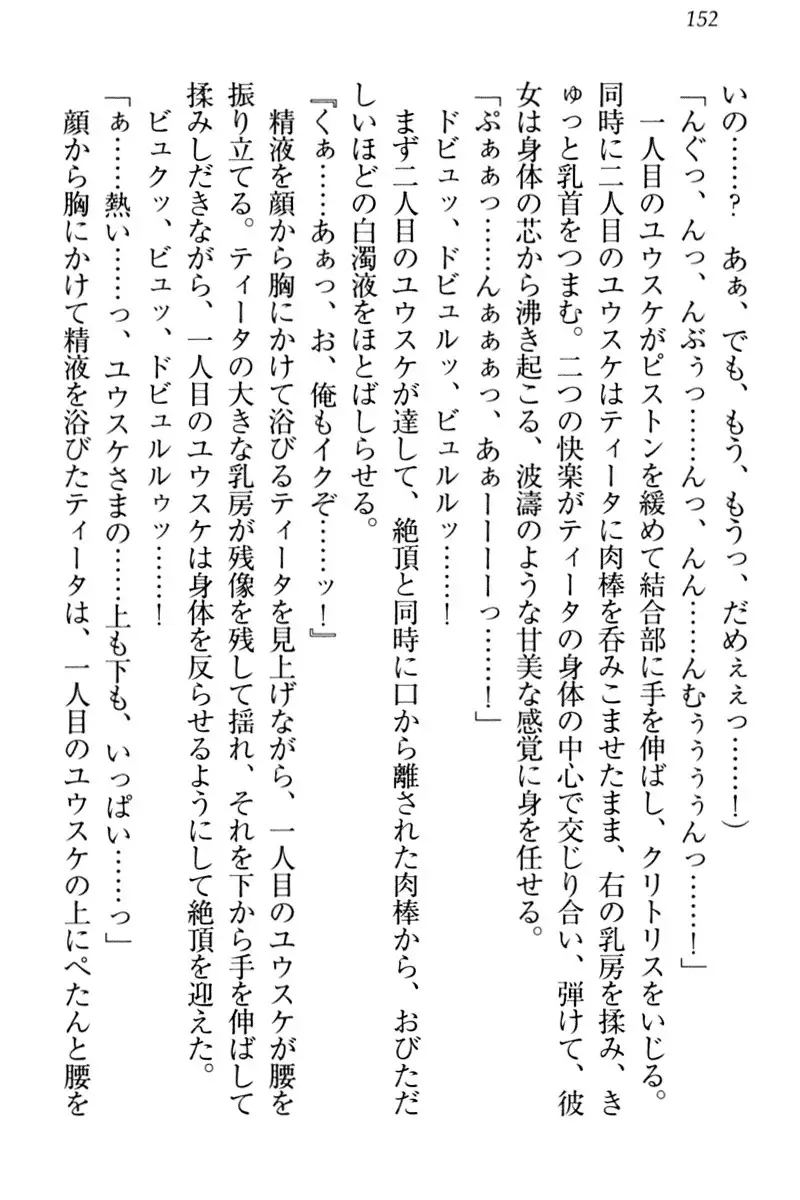 152
いの……?　あぁ、でも、もう、もうっ、だめぇぇっ……!）
「んぐっ、んっ、んぶぅっ……んっ、んん……んむぅぅぅぅんっ……!」
一人目のユウスケがピストンを緩めて結合部に手を伸ばし、クリトリスをいじる。
同時に二人目のユウスケはティータに肉棒を呑みこませたまま、右の乳房を揉み、き
ゅっと乳首をつまむ。二つの快楽がティータの身体の中心で交じり合い、弾けて、彼
女は身体の芯から沸き起こる、波濤のような甘美な感覚に身を任せる。
「ぷぁぁっ……んぁぁぁっ、あぁーーーーっ……!」
ドビュッ、ドビュルッ、ビュルルッ……!
まず二人目のユウスケが達して、絶頂と同時に口から離された肉棒から、おびただ
しいほどの白濁液をほとばしらせる。
『くぁ……あぁっ、お、俺もイクぞ……ッ!』
精液を顔から胸にかけて浴びるティータを見上げながら、一人目のユウスケが腰を
振り立てる。ティータの大きな乳房が残像を残して揺れ、それを下から手を伸ばして
揉みしだきながら、一人目のユウスケは身体を反らせるようにして絶頂を迎えた。
ビュクッ、ビュッ、ドビュルルゥッ……!
「ぁ……熱い……っ、ユウスケさまの……上も下も、いっぱい……っ」
顔から胸にかけて精液を浴びたティータは、一人目のユウスケの上にぺたんと腰を